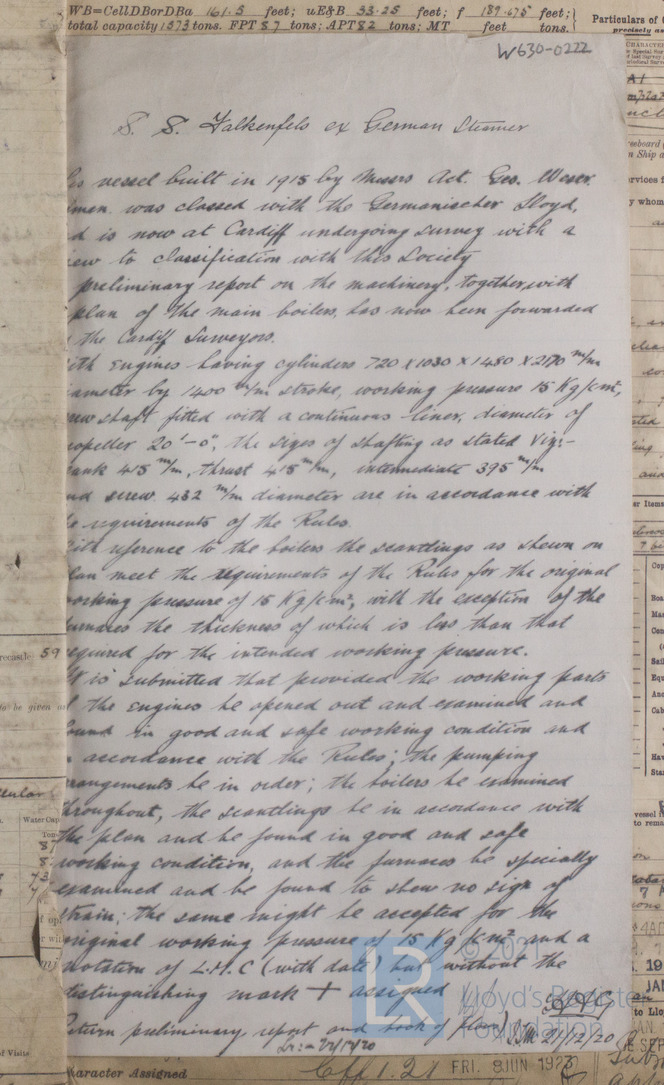 WB=CellDBorDBa 161.5 feet; uE&B 33.25 feet; f 189.675 feet;
total capacity 1573 tons. FPT 87 tons; APT 82 tons; MT feet tons.
Particulars of
W630-0222
S. S. Falkenfels ex German Steamer
is vessel built in 1915 by Messrs Act. Ges. Weser
men was classed with the Germanischer Lloyd,
d is now at Cardiff undergoing survey with a
ew to classification with this Society
preliminary report on the machinery, together with
plan of the main boilers has now been forwarded
the Cardiff Surveyors.
ith engines having cylinders 720 x 1030 x 1480 x 2170 m/m
iameter by 1400 m/m stroke, working pressure 15 Kg/cm²,
rew shaft fitted with a continuous liner, diameter of
ropeller 20'-0", the sizes of shafting as stated viz:-
rank 415 m/m, thrust 415 m/m, intermediate 395 m/m
nd screw 432 m/m diameter are in accordance with
e requirements of the Rules.
ith reference to the boilers the scantlings as shewn on
lan meet the requirements of the Rules for the original
orking pressure of 15 Kg/cm², with the exception of the
urnaces the thickness of which is less than that
equired for the intended working pressure.
It is submitted that provided the working parts
f the engines be opened out and examined and
ound in good and safe working condition and
n accordance with the Rules; the pumping
rrangements be in order; the boilers be examined
throughout, the scantlings be in accordance with
the plan and be found in good and safe
working condition, and the furnaces be specially
examined and be found to shew no sign of
strain; the same might be accepted for the
original working pressure of 15 Kg/cm² and a
notation of L.M.C (with date) but without the
distinguishing mark + assigned
Return preliminary report and book of plans
21/12/20
© 2021
Lloyd's Register
Foundation
LR
recastle 59
to be given
Water Cap
of Visite
haracter Assigned
FRI. 8 JUN 1923